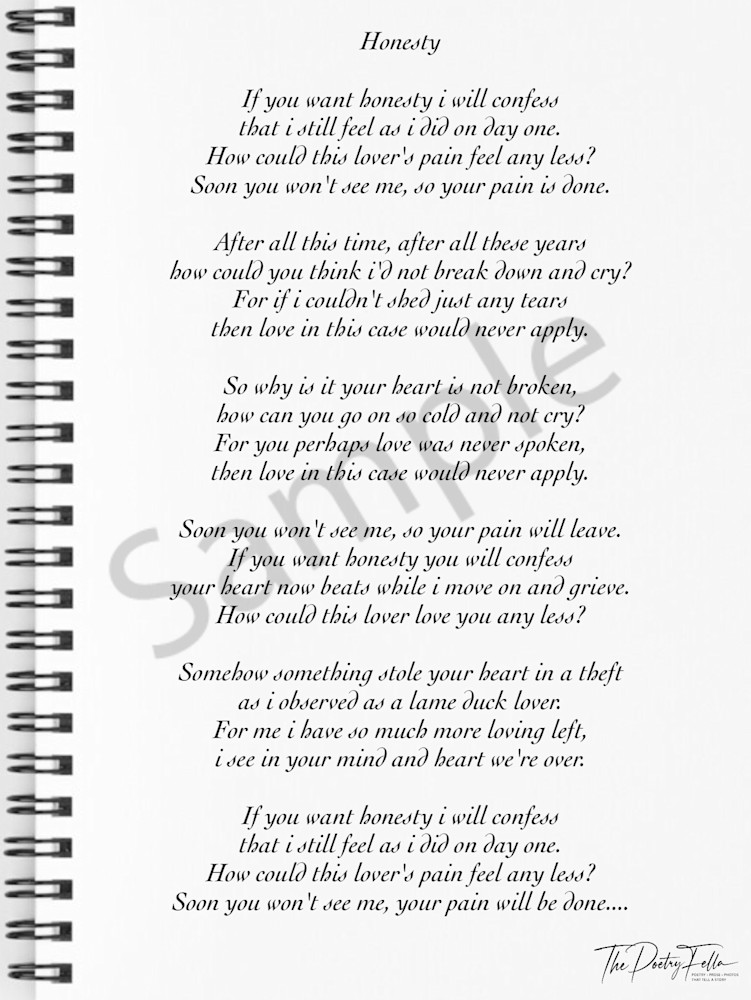 Honesty
If you want honesty i will confess
that i still feel as i did on day one.
How could this lover's pain feel any less?
Soon you won't see me, so your pain is done.
After all this time, after all these years
how could you think i'd not break down and cry?
For if i couldn't shed just any tears
then love in this case would never apply.
So why is it your heart is not broken,
how can you go on so cold and not cry?
For you perhaps love was never spoken,
then love in this case would never apply.
Soon you won't see me, so your pain will leave.
If you want honesty you will confess
your heart now beats while i move on and grieve.
How could this lover love you any less?
Somehow something stole your heart in a theft
as i observed as a lame duck lover.
For me i have so much more loving left,
i see in your mind and heart we're over.
If you want honesty i will confess
that i still feel as i did on day one.
How could this lover's pain feel any less?
Soon you won't see me, your pain will be done....
Sample
ThePoetryFella
POETRY • PROSE • PHOTOS
THAT TELL A STORY